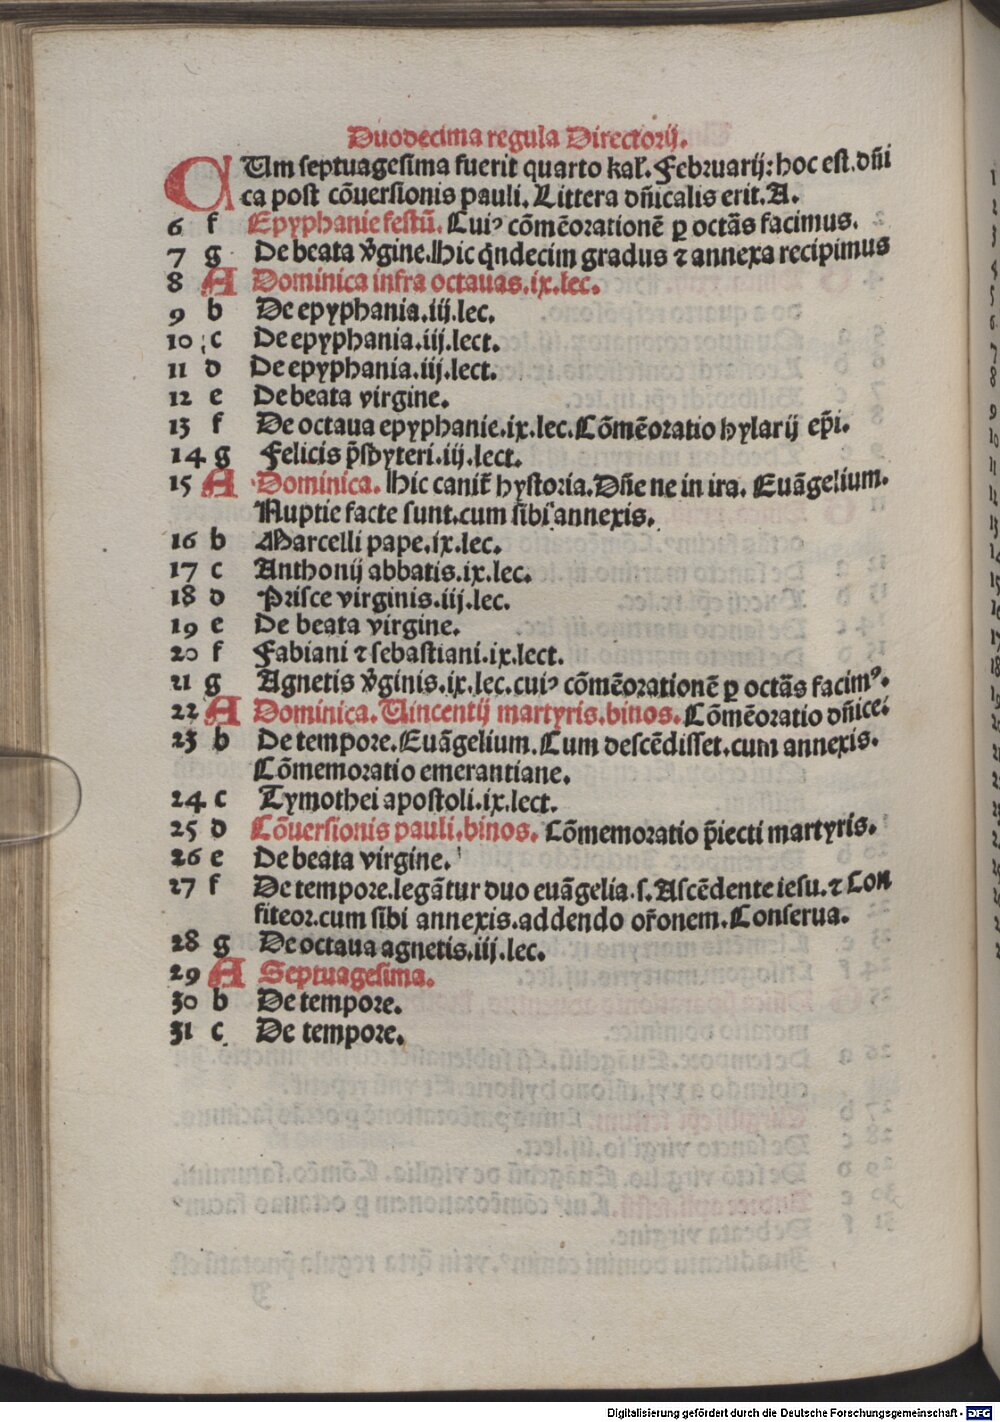 Duodecima regula Directorij.
CUm septuagesima fuerit quarto kal̄. Februarij: hoc est. dñi
ca post cōuersionis pauli. Littera dñicalis erit. A.
6 f Epyphanie festū. Cuiꝰ cōmēorationē ꝑ octãs facimus.
7 g De beata v̄gine. Hic q̄ndecim gradus ⁊ annexa recipimus
8 A Dominica infra octauas. ix. lec.
9 b De epyphania. iij. lec.
10 c De epyphania. iij. lect.
11 d De epyphania. iij. lect.
12 e De beata virgine.
13 f De octaua epyphanie. ix. lec. Cōmēoratio hylarij ep̄i.
14 g Felicis p̄sbyteri. iij. lect.
15 A Dominica. Hic canit̄ hystoria. Dñe ne in ira. Euāgelium.
Nuptie facte sunt. cum sibi annexis.
16 b Marcelli pape. ix. lec.
17 c Anthonij abbatis. ix. lec.
18 d Prisce virginis. iij. lec.
19 e De beata virgine.
20 f Fabiani ⁊ sebastiani. ix. lect.
21 g Agnetis v̄ginis. ix. lec. cuiꝰ cōmēorationē ꝑ octãs facimꝰ.
22 A Dominica. Uincentij martyris. binos. Cōmēoratio dñice.
23 b De tempore. Euāgelium. Cum descēdisset. cum annexis.
Cōmemoratio emerantiane.
24 c Tymothei apostoli. ix. lect.
25 d Cōuersionis pauli. binos. Cōmemoratio p̄iecti martyris.
26 e De beata virgine.
27 f De tempore. legāt̄ur duo euāgelia. s. Ascēdente iesu. ⁊ Con
fiteor. cum sibi annexis. addendo or̄onem. Conserua.
28 g De octaua agnetis. iij. lec.
29 A Septuagesima.
30 b De tempore.
31 c De tempore.
Digitalisierung gefördert durch die Deutsche Forschungsgemeinschaft - DFG